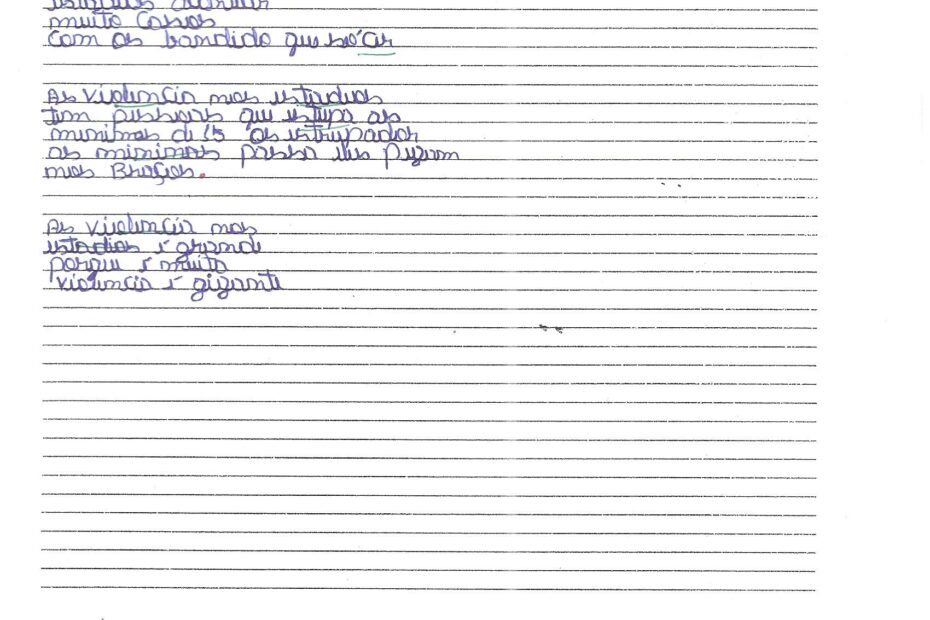 muito casos
com os bandido que
As violencia nos estadios
tem pessoas que estupa as
meninas di 15 os estrupador
as meninas passa eles pegam
nos Braços.
As violencia nos
estadios é grandi
porque é muita
violencia é giganti